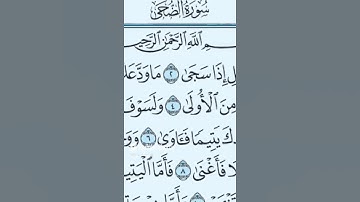 سُورَةُ الضُّحَىٰ
ـمِ اللَّهِ الرَّحْمَٰنِ الرَّحِيمِ
ـلِ إِذَا سَجَىٰ ٢ مَا وَدَّعَكَ
مِنَ الْأُولَىٰ ٤ وَلَسَوْفَ
ـكَ يَتِيمًا فَـَٔاوَىٰ ٦ وَوَ
ـلًا فَأَغْنَىٰ ٨ فَأَمَّا الْيَتِيـ